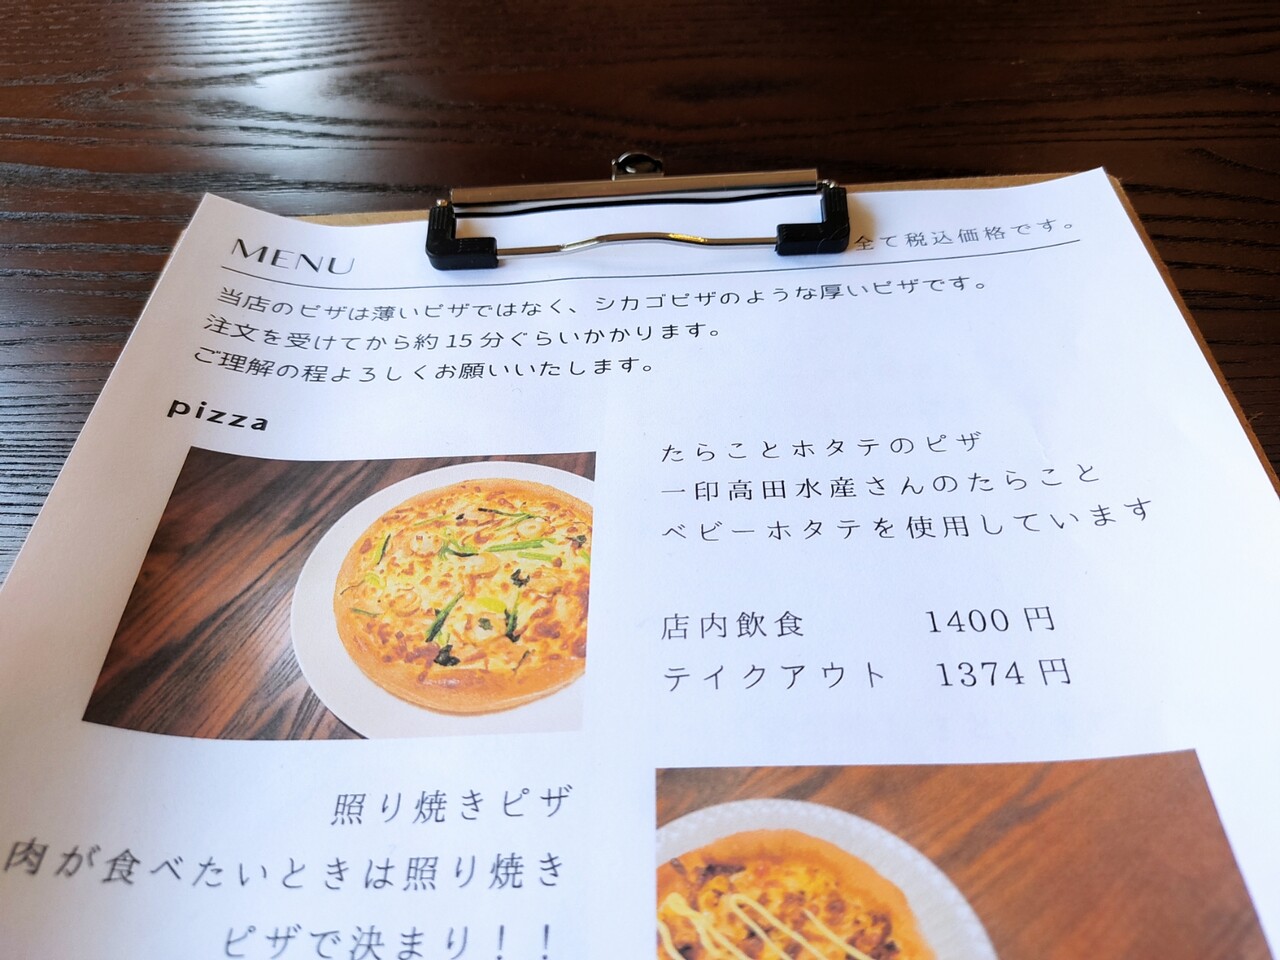 MENU
全て税込価格です。
当店のピザは薄いピザではなく、シカゴピザのような厚いピザです。
注文を受けてから約15分ぐらいかかります。
ご理解の程よろしくお願いいたします。
pizza
たらことホタテのピザ
一印高田水産さんのたらこと
ベビーホタテを使用しています
店内飲食 1400 円
テイクアウト 1374 円
照り焼きピザ
肉が食べたいときは照り焼き
ピザで決まり！！